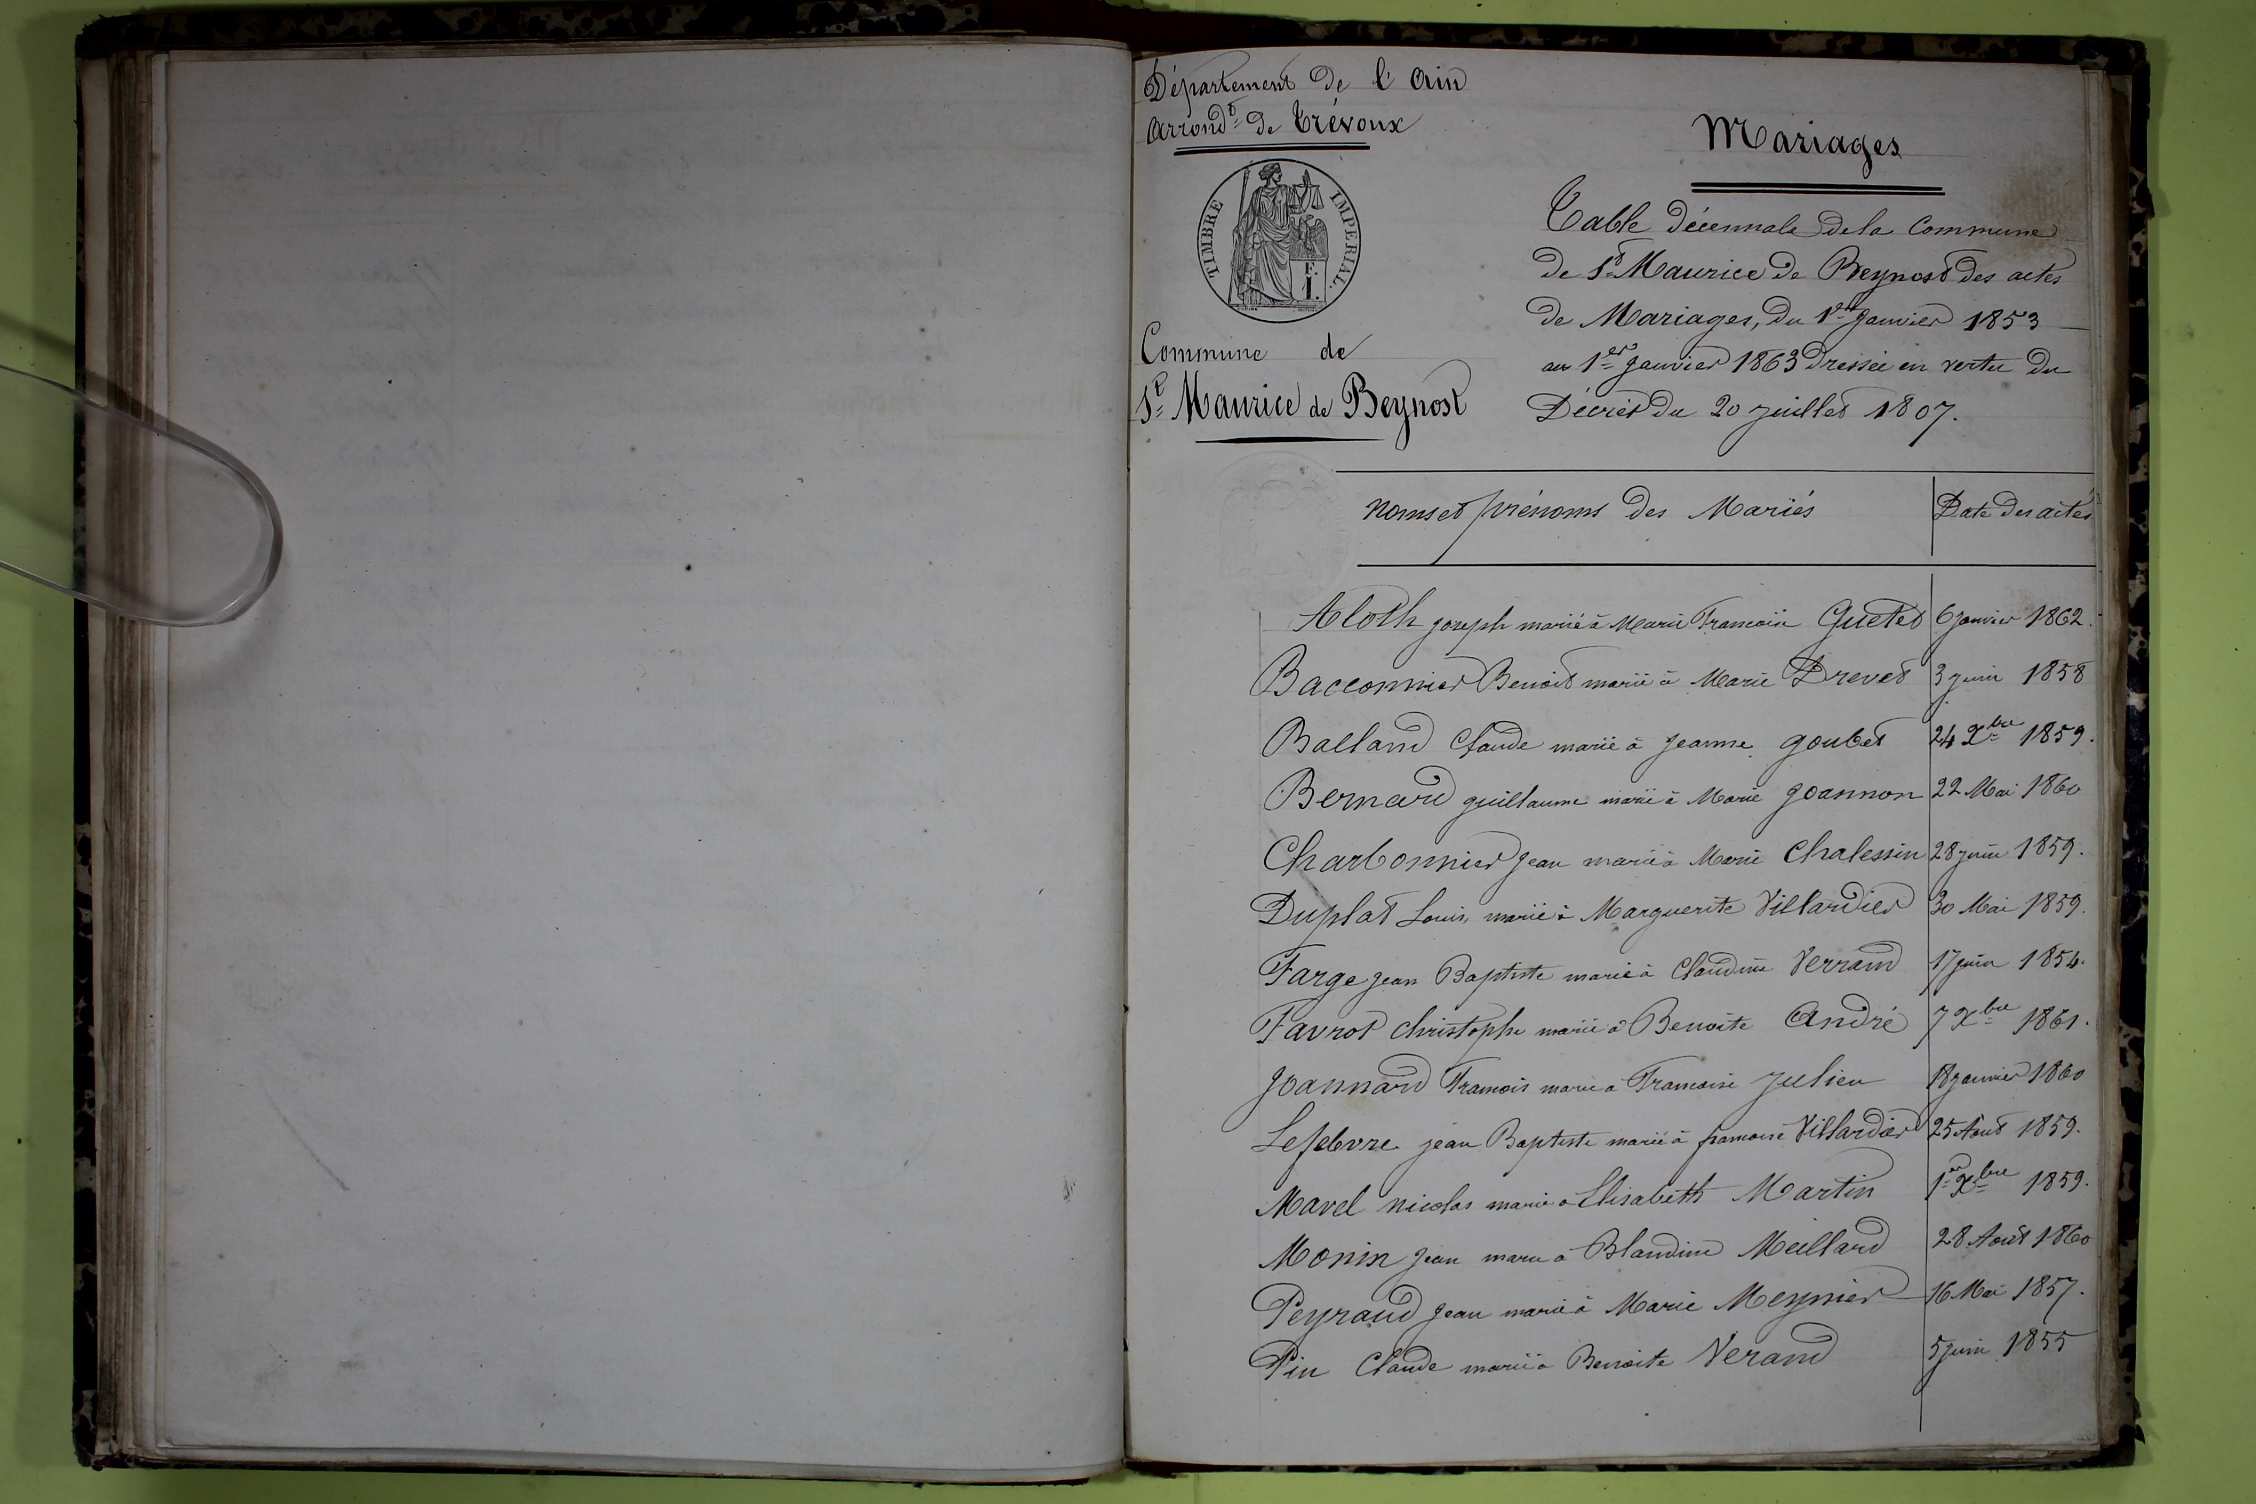 Département de l'Ain
Arrondt de Trévoux
TIMBRE IMPERIAL.
Commune de
St Maurice de Beynost
Mariages
Table décennale de la Commune
de St Maurice de Beynost des actes
de Mariages, du 1er Janvier 1853
au 1er Janvier 1863 Dressée en vertu du
Décret du 20 Juillet 1807.
Noms et prénoms des Mariés Date des actes
Aloth Joseph marié à Marie Francoise Guetet 6 Janvier 1862.
Bacconnier Benoit marié à Marie Drevet 3 juin 1858
Balland Claude marié à Jeanne Goubet 24 Xbre 1859.
Bernard Guillaume marié à Marie Joannon 22 Mai 1860
Charbonnier Jean marié à Marie Chalessin 28 juin 1859.
Duplat Louis, marié à Marguerite Villardier 30 Mai 1859.
Farge Jean Baptiste marié à Claudine Verrand 17 juin 1854.
Favrot Christophe marié à Benoite André 7 Xbre 1861.
Joannard Francois marié à Francoise Julien 18 Janvier 1860
Lefebvre jean Baptiste marié à francoise Villardier 25 Aout 1859.
Mavel Nicolas marié a Elisabeth Martin 1er Xbre 1859.
Monin Jean marié a Blandine Meillard 28 Août 1860
Peyraud Jean marié à Marie Meynier 16 Mai 1857.
Pin Claude marié à Benoite Verand 5 juin 1855